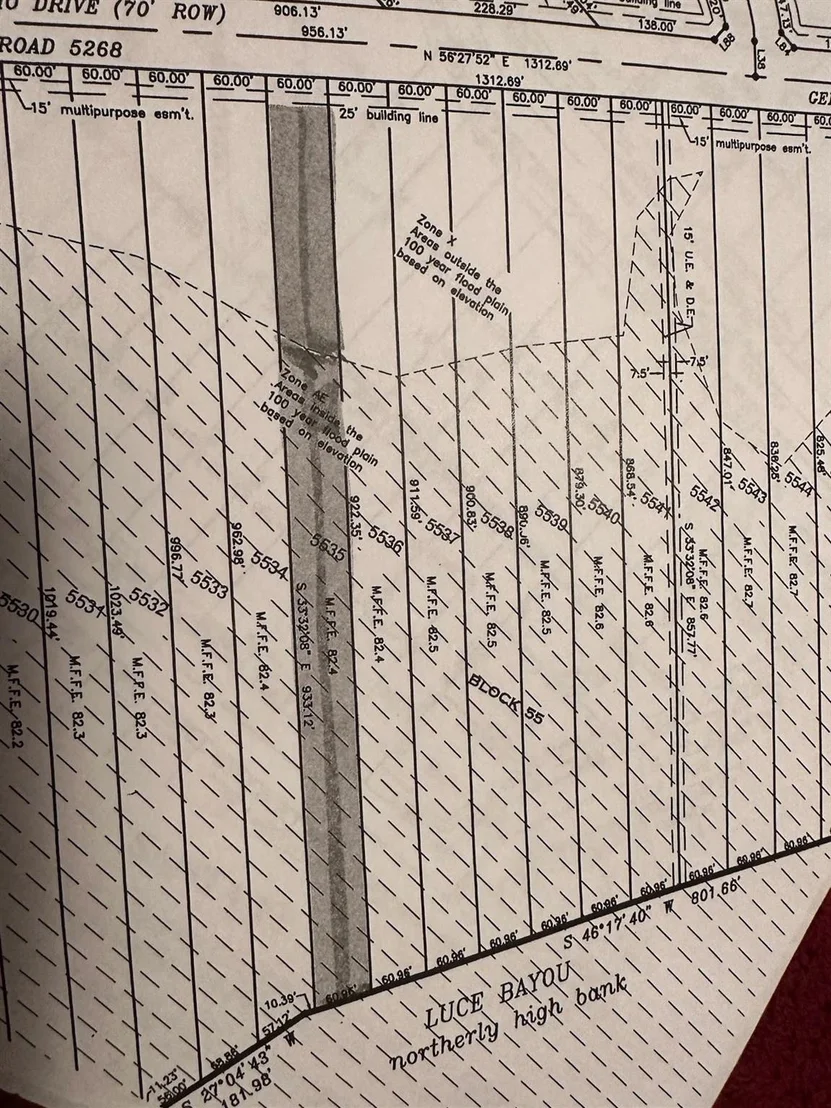 DRIVE (70' ROW)
906.13'
228.29'
building line
138.00'
956.13'
ROAD 5268
N 56°27'52" E 1312.69'
1312.69'
L38
60.00'
60.00'
60.00'
60.00'
60.00'
60.00'
60.00'
60.00'
60.00'
60.00'
60.00'
60.00'
60.00'
15' multipurpose esm't.
25' building line
15' multipurpose esm't.
Zone X
Areas outside the
100 year flood plain
based on elevation
15' U.E. & D.E.
7.5'
7.5'
Zone AE
Areas inside the
100 year flood plain
based on elevation
1019.44'
1023.49'
996.77'
962.98'
922.35'
911.59'
900.83'
890.06'
879.30'
868.54'
847.01'
836.25'
825.48'
5530
5531
5532
5533
5534
5535
5536
5537
5538
5539
5540
5541
5542
5543
5544
M.F.F.E. 82.2
M.F.F.E. 82.3
M.F.F.E. 82.3
M.F.F.E. 82.3
M.F.F.E. 82.4
S 33°32'08" E 933.12'
M.F.F.E. 82.4
M.F.F.E. 82.4
M.F.F.E. 82.5
M.F.F.E. 82.5
M.F.F.E. 82.5
M.F.F.E. 82.6
M.F.F.E. 82.6
S 33°32'08" E 857.77'
M.F.F.E. 82.6
M.F.F.E. 82.7
M.F.F.E. 82.7
BLOCK 55
60.96'
60.96'
60.96'
60.96'
60.96'
60.96'
60.96'
60.96'
60.96'
60.96'
S 46°17'40" W 801.66'
10.39'
57.17'
68.86'
11.23'
56.00'
S 27°04'43" W
181.98'
LUCE BAYOU
northerly high bank